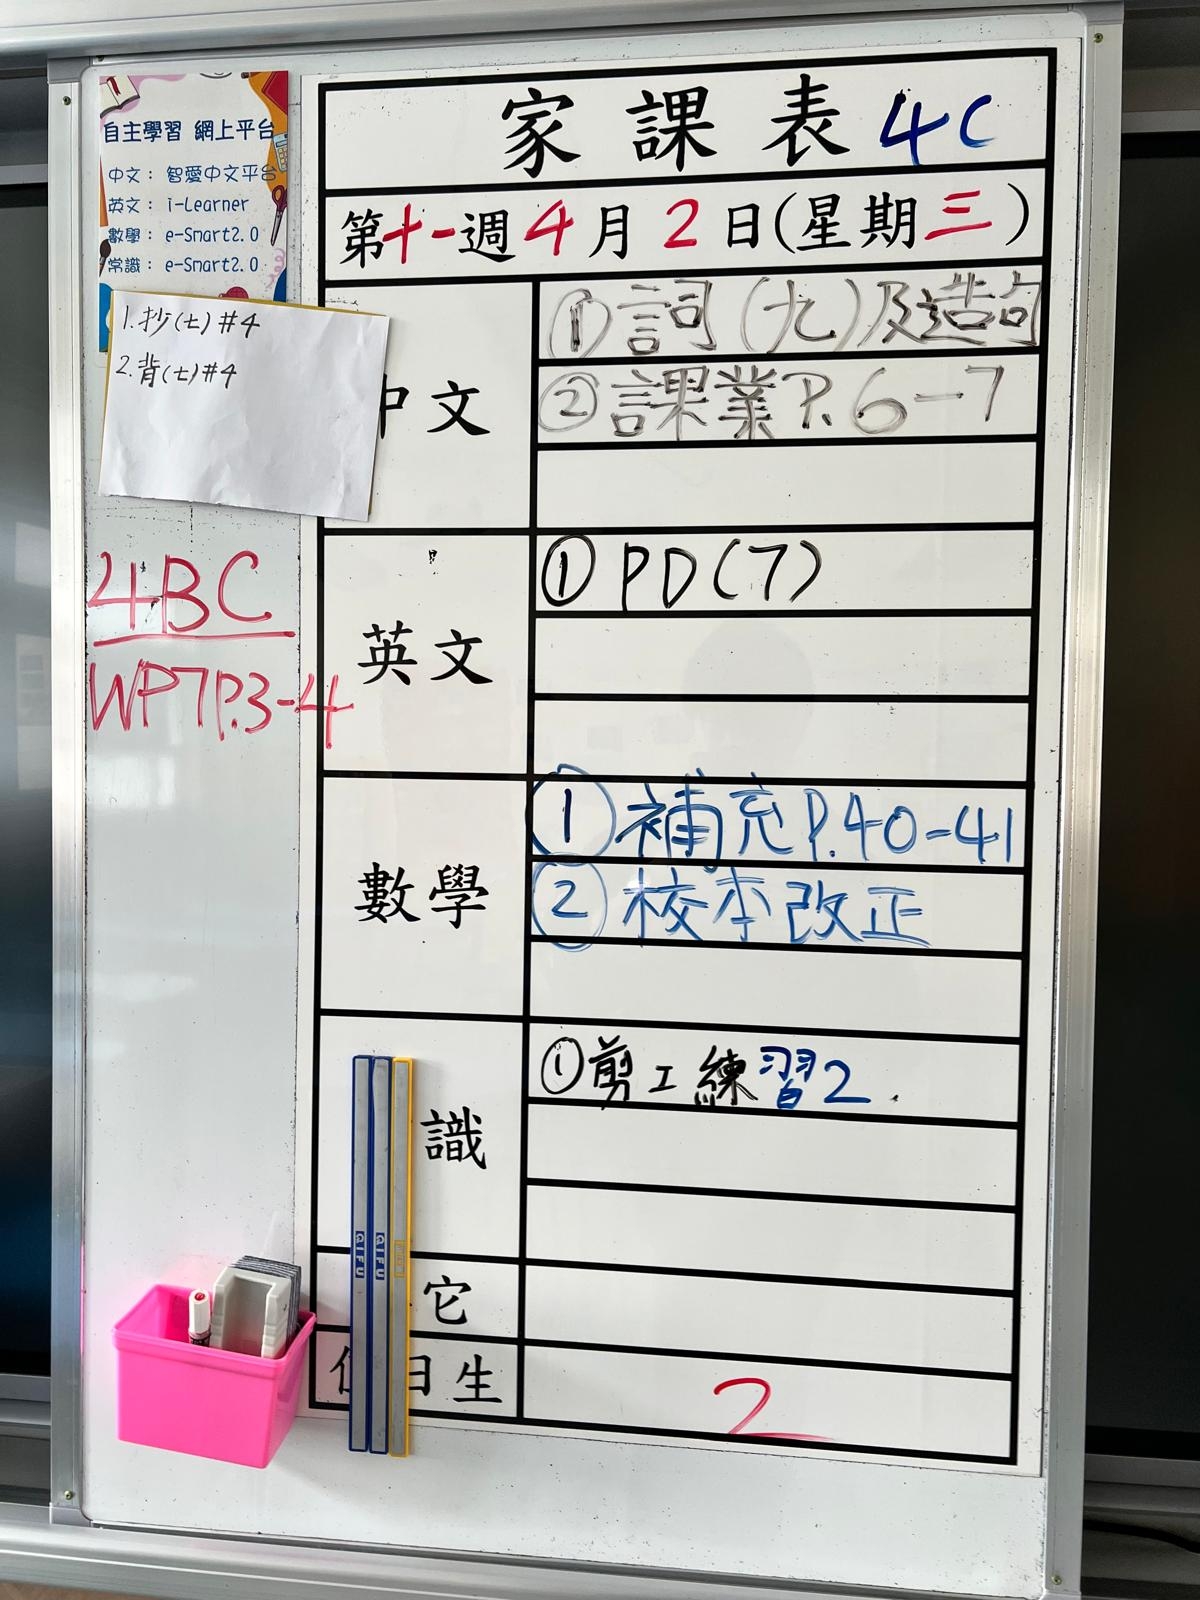 家課表 4C
第十一週4月2日(星期三)
自主學習 網上平台
中文： 智愛中文平台
英文： i-Learner
數學： e-Smart2.0
常識： e-Smart2.0
1.抄(七)#4
2.背(七)#4
4BC
WP7P.3-4
中文
①詞(九)及造句
②課業P.6-7
英文
①PD(7)
數學
①補充P.40-41
②校本改正
識
①剪工練習2.
它
日生
2
QIFU
QIFU